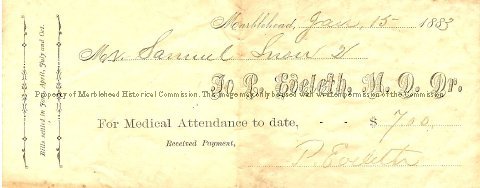 Marblehead, Jan 15 1883
Mr. Samuel Snow 2
To P. Eveleth, M. D. Dr.
Property of Marblehead Historical Commission. This image may only be used with written permission of the Commission.
For Medical Attendance to date, - - $ 7.00
Received Payment,
P. Eveleth
Bills settled in Jan., April, July and Oct.